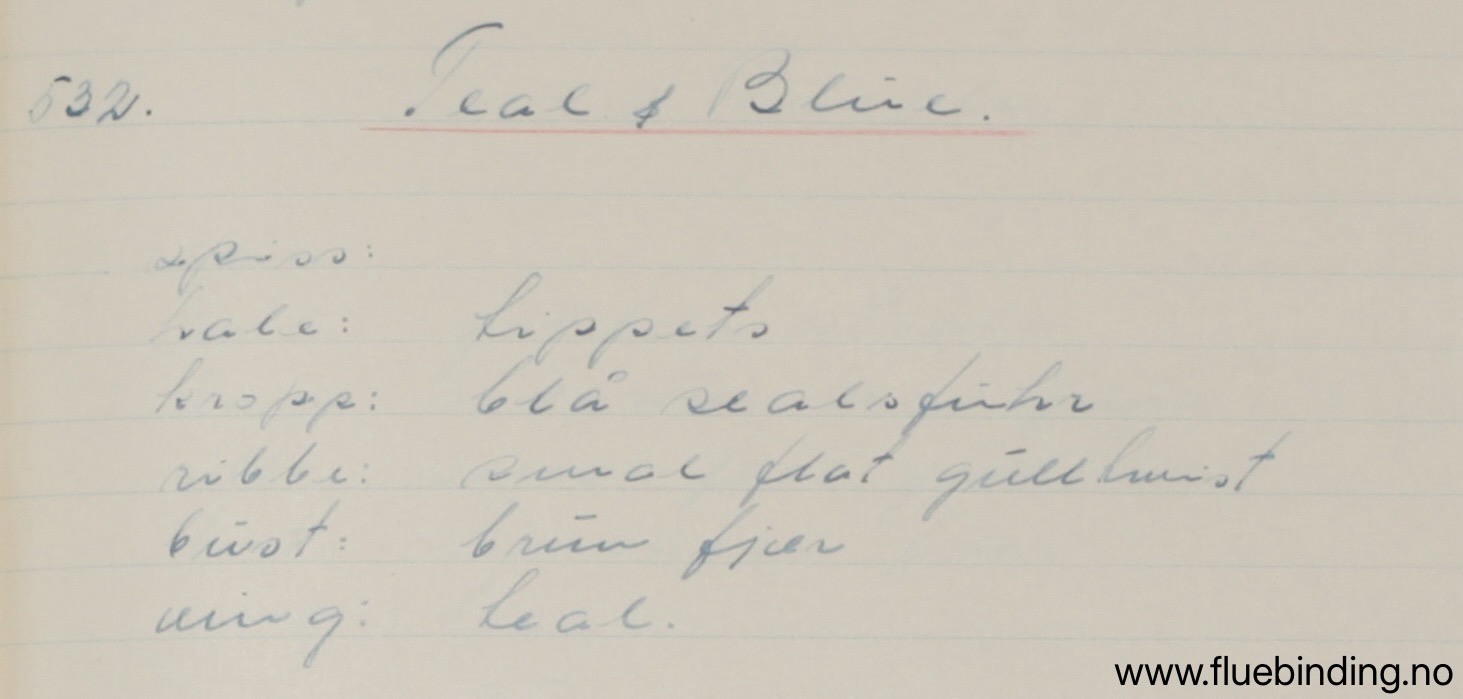 532. Teal & Blue.
spiss:
hale: tippets
kropp: blå sealsfuhr
ribbe: smal flat gulltwist
bust: brun fjær
ving: teal.
www.fluebinding.no